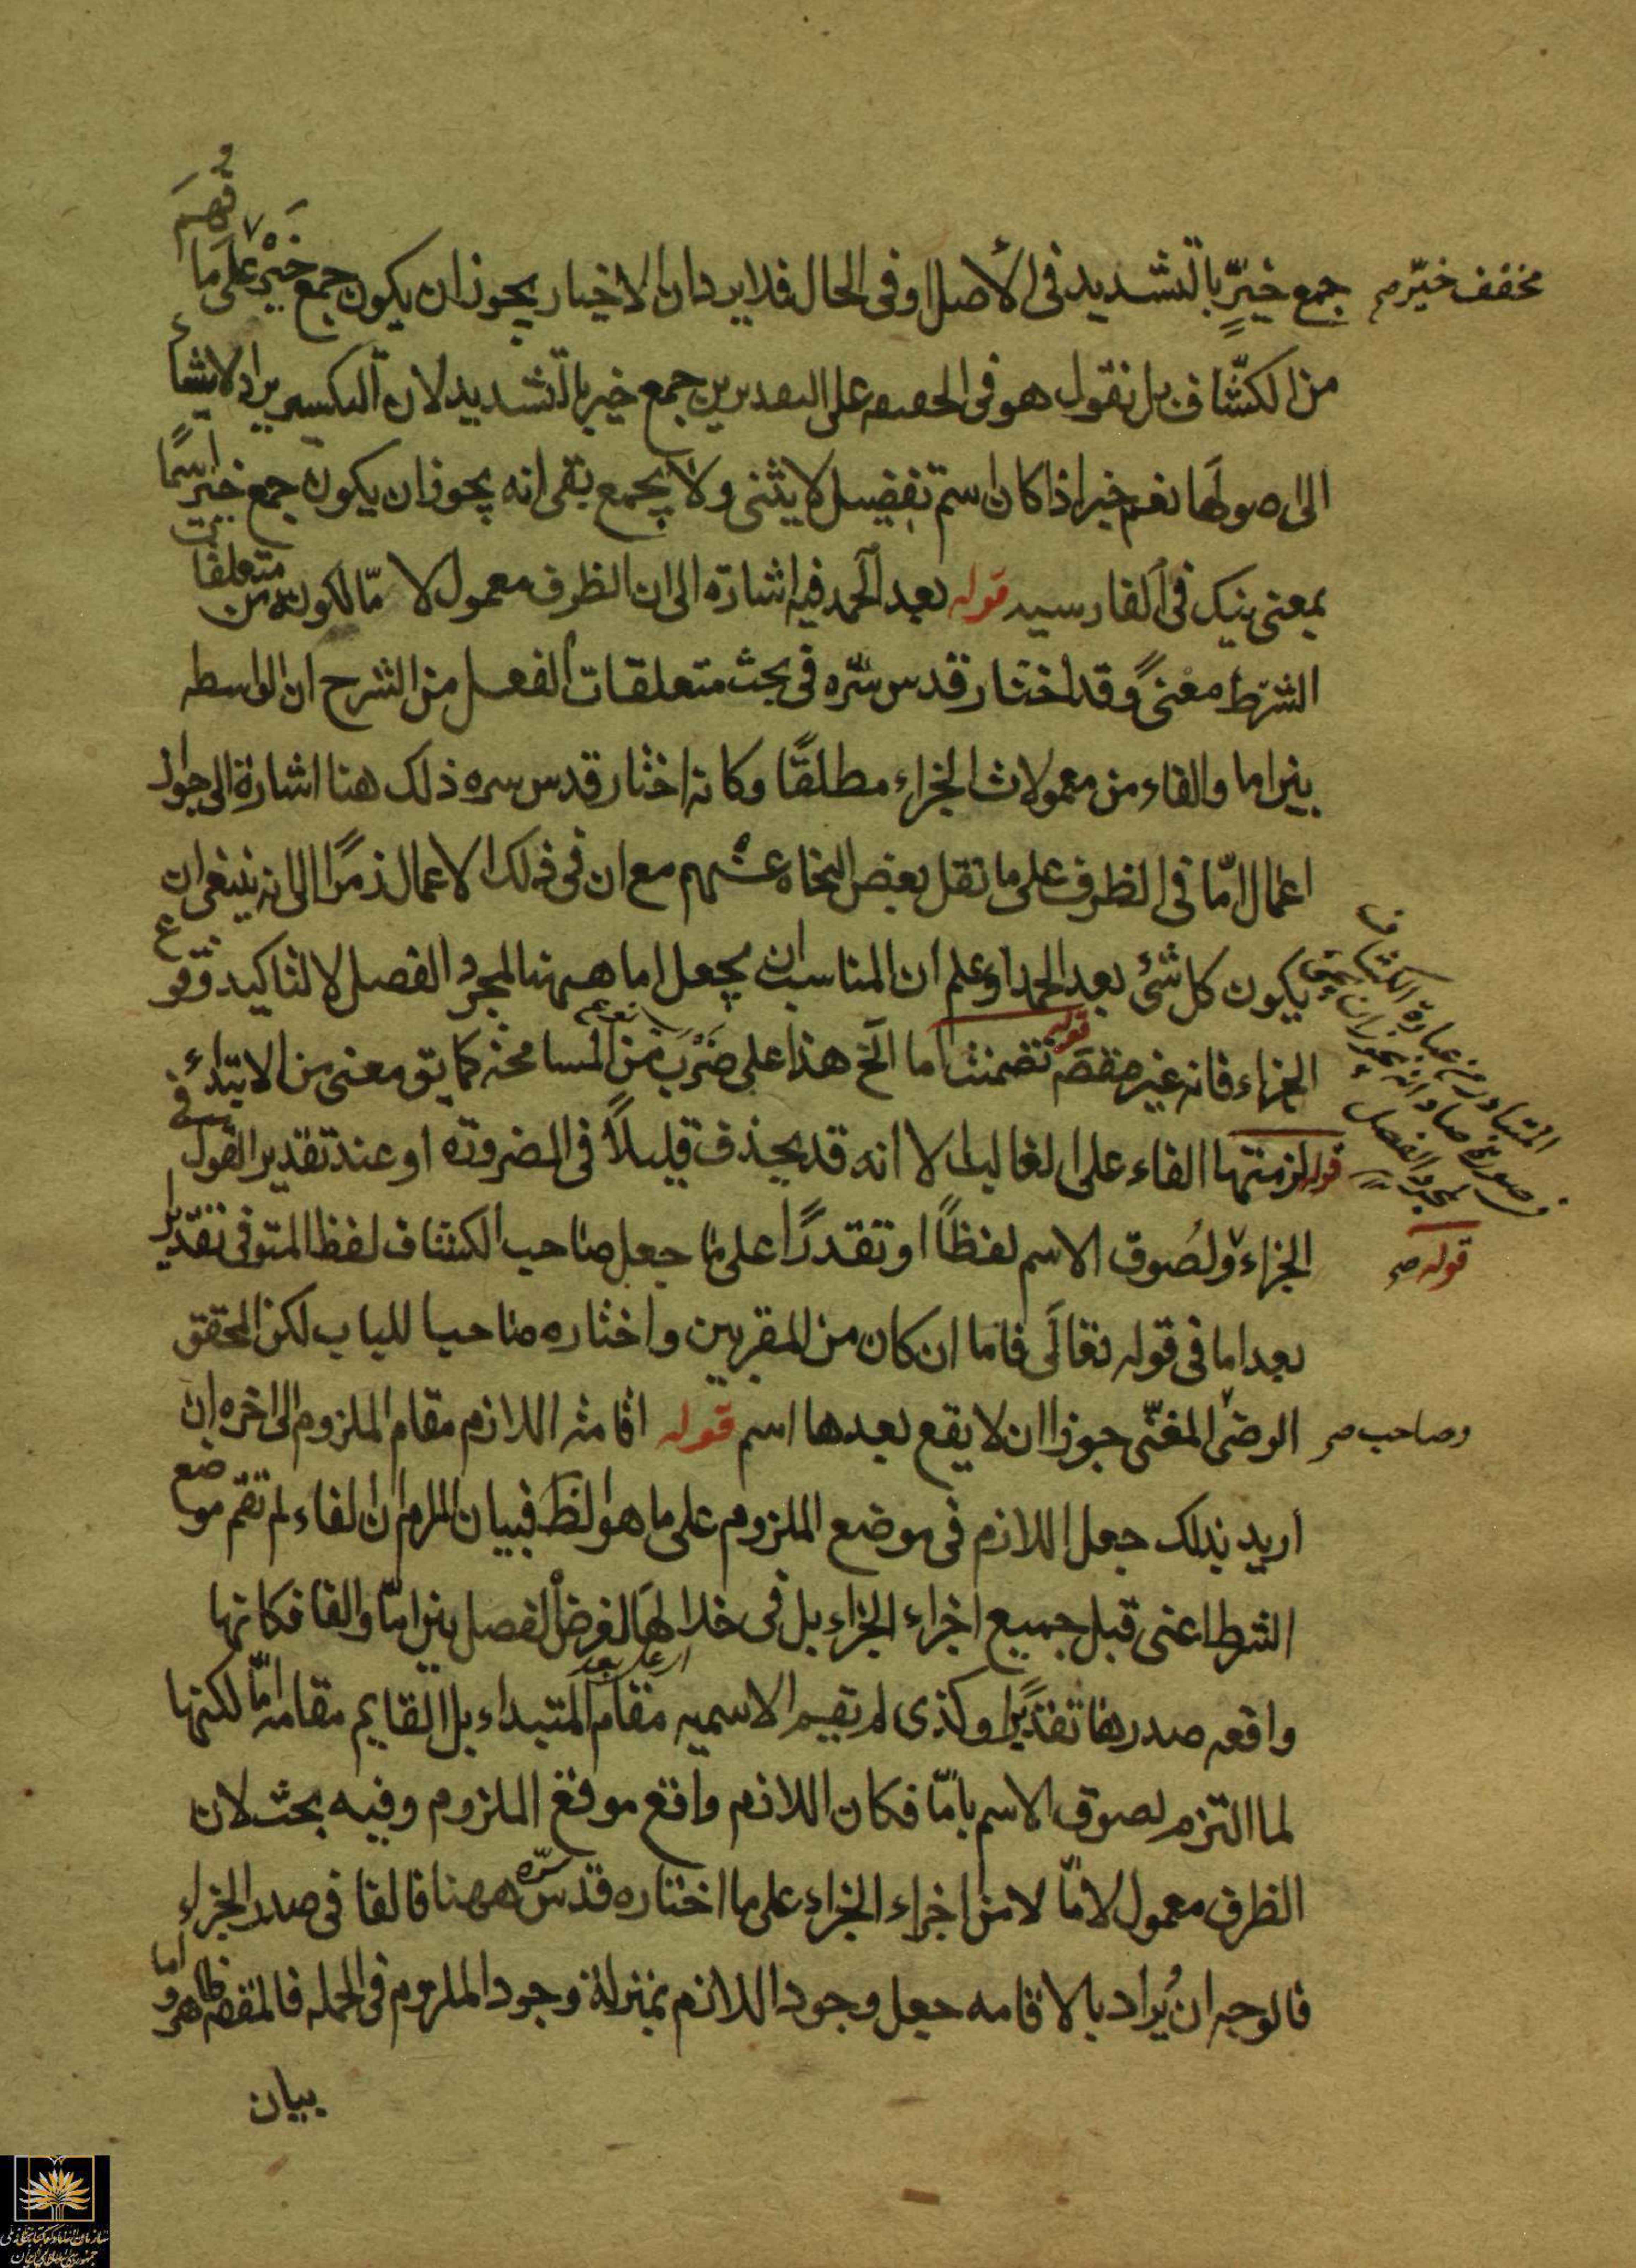 جمع خيّر بالتشديد في الأصل او في الحال فلا يرد ان الاخيار يجوز ان يكون جمع خَيْر على ما فُهِمَ
مخفف خيّر صح
من الكشّاف بل نقول هو في الحقيقه على التقديرين جمع خير بالتشديد لان التكسير يرد الاشياء
الى اصولها نعم خير اذا كان اسم تفضيل لا يثنى ولا يجمع بقى انه يجوز ان يكون جمع خير اسمًا
بمعنى نيك في الفارسيه قوله بعد الحمد فيه اشارة الى ان الظرف معمول لامّا لكونه من متعلقات
الشرط معنىً وقد اختار قدس سره في بحث متعلقات الفعل من الشرح ان الواسطه
بين اما والفاء من معمولات الجزاء مطلقًا وكانه اختار قدس سره ذلك هنا اشارة الى جواز
اعمال امّا في الظرف على ما نقل بعض النحاه عنهم مع ان في ذلك الاعمال رمزًا الى انه ينبغى ان
يكون كل شئ بعد الحمد اوعلم ان المناسب ان يجعل اما ههنا لمجرد الفصل لا لتاكيد وقوع
الجزاء فانه غير قوله تضمنت اما الخ هذا على ضرب من المسامحه كما يق معنى من الابتداء
قوله لزمتها الفاء على الغالب الا انه قد يحذف قليلاً في الضرورة او عند تقدير القول في
الجزاء ولصوق الاسم لفظاً او تقديرًا على ما جعل صاحب الكشاف لفظ المتوفى تقديرا
قوله صح
بعد اما في قوله تعالى فاما ان كان من المقربين واختاره صاحب اللباب لكن المحقق
الرضى المغنّى جوزا ان لا يقع بعدها اسم قوله اقامة اللازم مقام الملزوم الى اخره ان
وصاحب صح
اريد بذلك جعل اللازم في موضع الملزوم على ما هو الظ فبيان اللزم ان الفاء لم تقم موضع
الشرط اعنى قبل جميع اجزاء الجزاء بل في خلالها لغرض الفصل بين امّا والفا فكانها
واقعه صدرها تقديرًا وكذى لم تقيم الاسميه مقام المبتداء بل القايم مقامه امّا لكنها
لما التزم لصوق الاسم بامّا فكان اللازم واقع موقع الملزوم وفيه بحث لان
الظرف معمول لامّا لا من اجزاء الجزاء على ما اختاره قدس سرّه ههنا فالفا في صدر الجزاء
فالوجه ان يُراد بالاقامه جعل وجود اللازم بمنزلة وجود الملزوم في الجمله
بيان